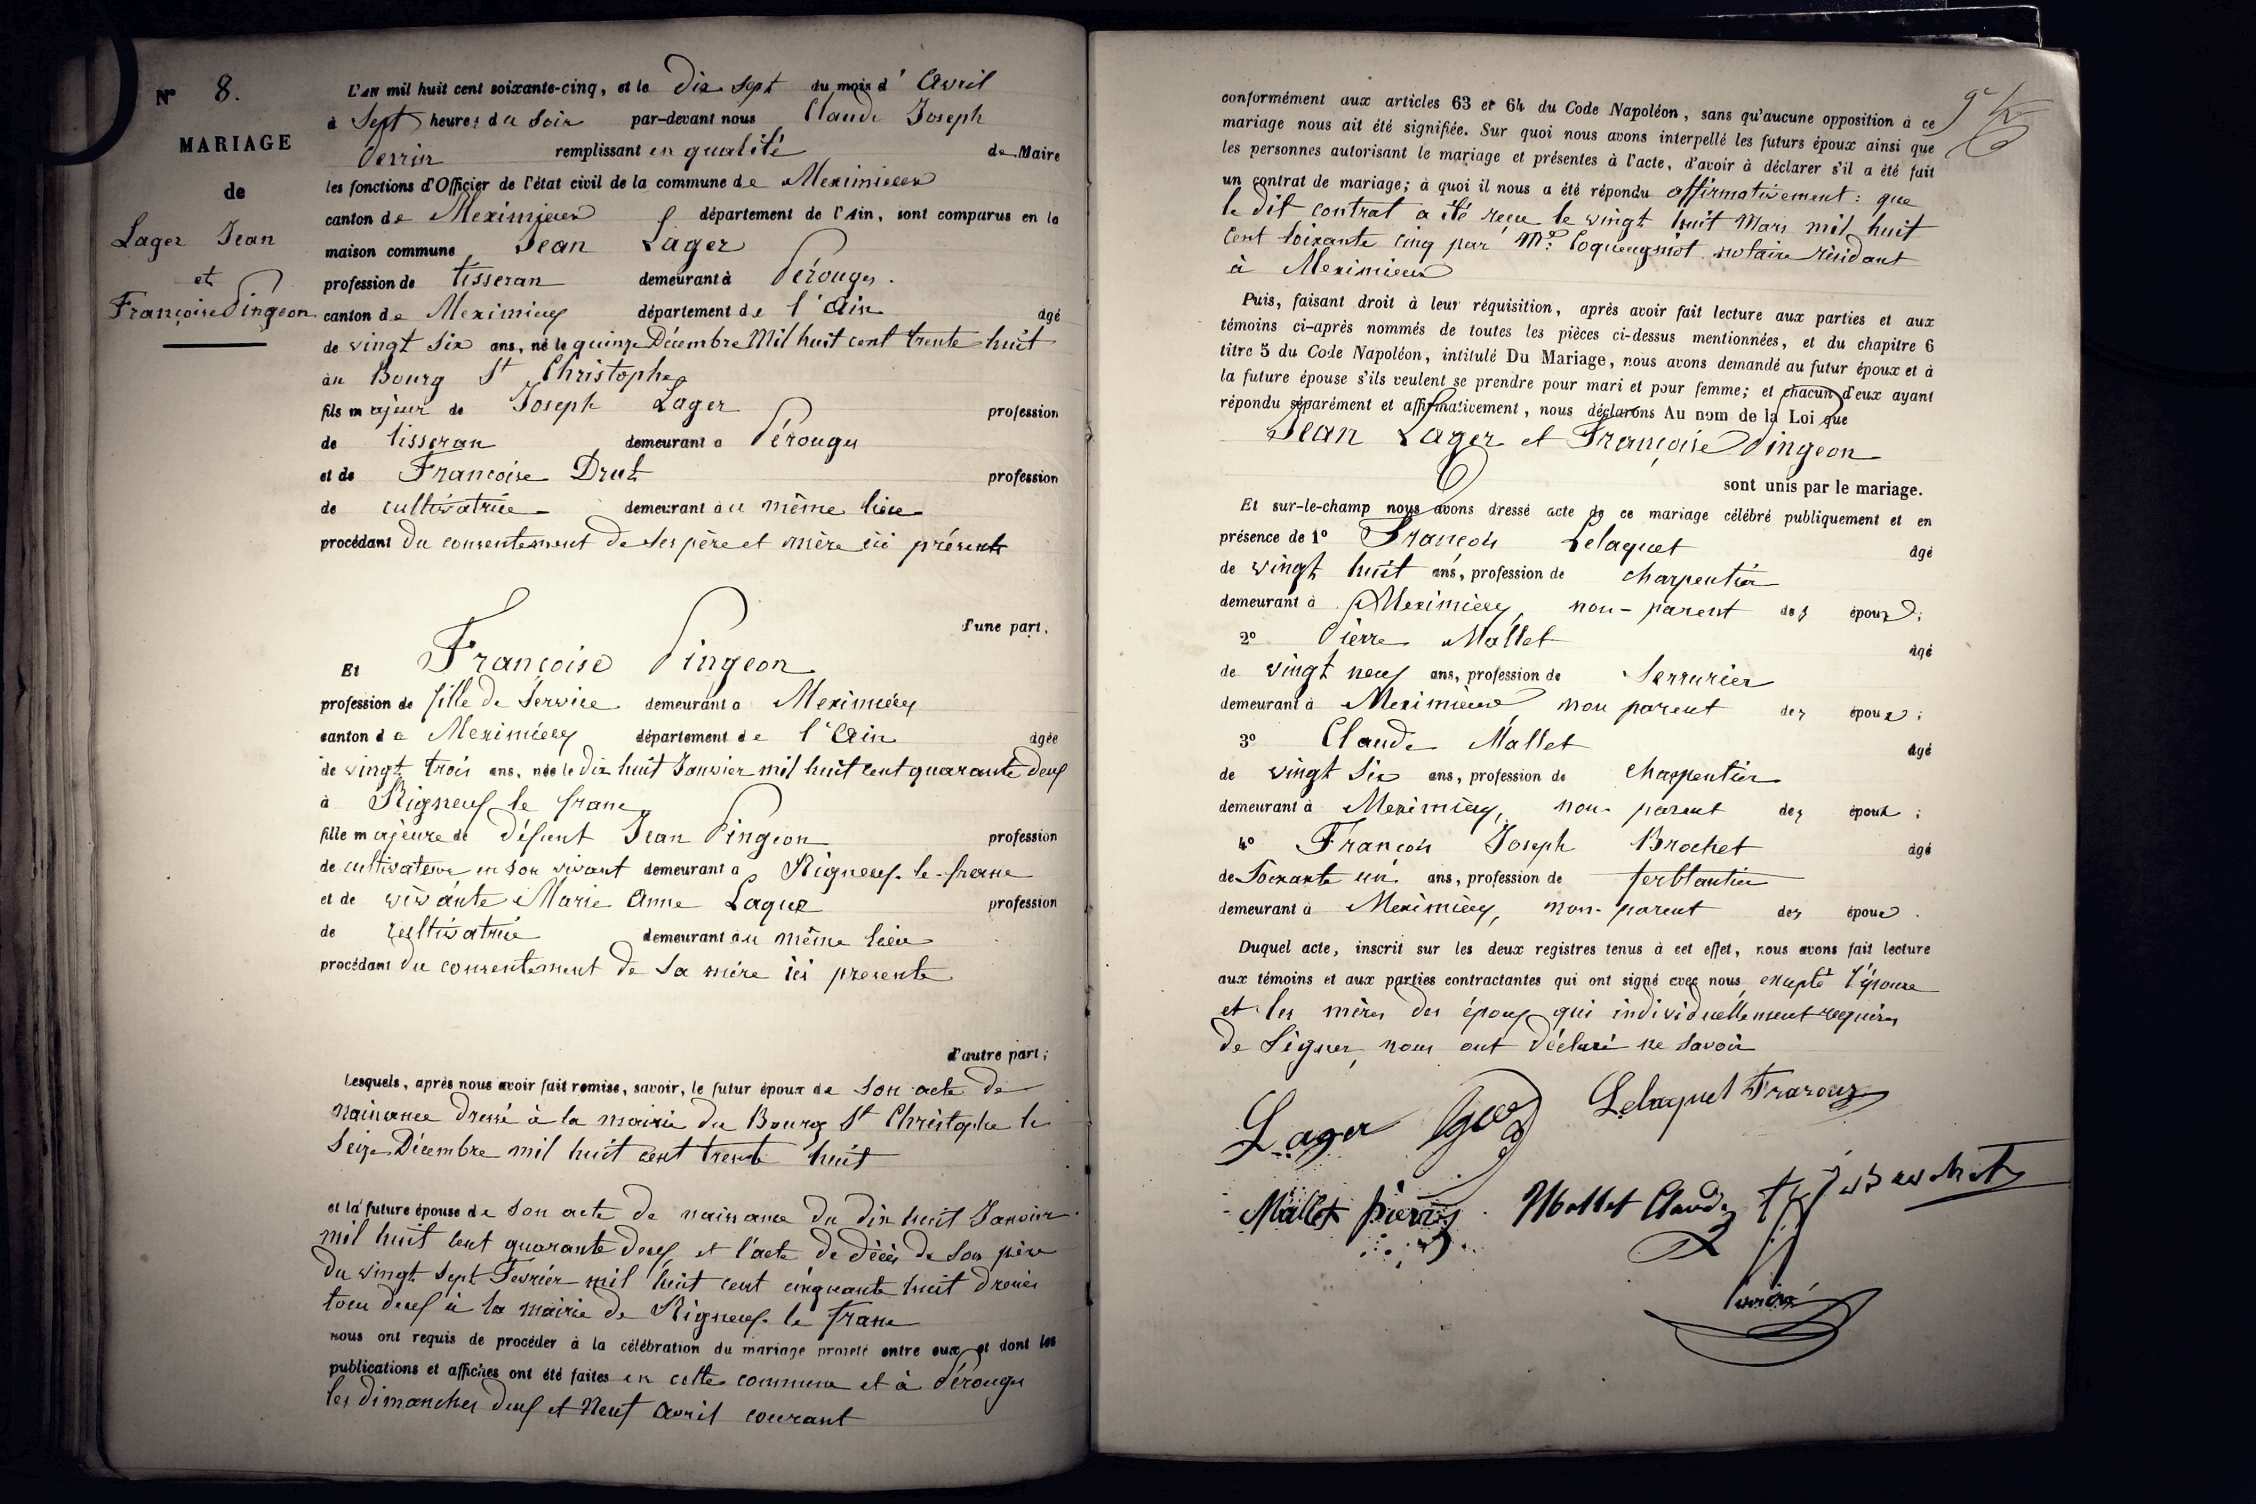 N° 8.
MARIAGE
de
Lager Jean
et
Françoise Pingeon
L'an mil huit cent soixante-cinq, et le Dix sept du mois d'Avril
à Sept heures du Soir par-devant nous Claude Joseph
Perrin remplissant en qualité de Maire
les fonctions d'Officier de l'état civil de la commune de Meximieux
canton de Meximieux département de l'Ain, sont comparus en la
maison commune Jean Lager
profession de tisseran demeurant à Pérouges.
canton de Meximieux département de l'Ain âgé
de vingt six ans, né le quinze Décembre Mil huit cent trente huit
au Bourg St Christophe
fils majeur de Joseph Lager profession
de tisseran demeurant à Pérouges
et de Francoise Drut profession
de cultivatrice demeurant au même lieu
procédant du consentement de ses père et mère ici présents
d'une part.
Et Françoise Pingeon
profession de fille de Service demeurant à Meximieux
canton de Meximieux département de l'Ain âgée
de vingt trois ans, née le Dix huit Janvier mil huit cent quarante deux
à Rigneux le franc
fille majeure de défunt Jean Pingeon profession
de cultivateur en son vivant demeurant à Rigneux-le-franc
et de vivante Marie Anne Laguz profession
de cultivatrice demeurant au même lieu
procédant du consentement de Sa mère ici presente
d'autre part;
Lesquels, après nous avoir fait remise, savoir, le futur époux de Son acte de
naissance dressé à la mairie du Bourg St Christophe le
Seize Décembre mil huit cent trente huit
et la future épouse de Son acte de naissance du dix huit Janvier
mil huit cent quarante deux et l'acte de décès de Son père
du vingt sept Fevrier mil huit cent cinquante huit dressés
tous deux à la mairie de Rigneux-le franc
nous ont requis de procéder à la célébration du mariage projeté entre eux, et dont les
publications et affiches ont été faites en cette commune et à Pérouges
les dimanches deux et Neuf Avril courant
conformément aux articles 63 et 64 du Code Napoléon, sans qu'aucune opposition à ce
mariage nous ait été signifiée. Sur quoi nous avons interpellé les futurs époux ainsi que
les personnes autorisant le mariage et présentes à l'acte, d'avoir à déclarer s'il a été fait
un contrat de mariage; à quoi il nous a été répondu affirmativement: que
le dit contrat a été reçu le vingt huit Mars mil huit
cent Soixante cinq par Me. Coqueugniot notaire résidant
à Meximieux
Puis, faisant droit à leur réquisition, après avoir fait lecture aux parties et aux
témoins ci-après nommés de toutes les pièces ci-dessus mentionnées, et du chapitre 6
titre 5 du Code Napoléon, intitulé Du Mariage, nous avons demandé au futur époux et à
la future épouse s'ils veulent se prendre pour mari et pour femme; et chacun d'eux ayant
répondu séparément et affirmativement, nous déclarons Au nom de la Loi que
Jean Lager et Françoise Pingeon
sont unis par le mariage.
Et sur-le-champ nous avons dressé acte de ce mariage célébré publiquement et en
présence de 1° François Lelaquet âgé
de vingt huit ans, profession de charpentier
demeurant à Meximieux, non-parent des époux;
2° Pierre Mallet âgé
de vingt neuf ans, profession de Serrurier
demeurant à Meximieux non parent des époux;
3° Claude Mallet âgé
de vingt Six ans, profession de charpentier
demeurant à Meximieux, non-parent des époux;
4° François Joseph Brochet âgé
de Soixante un ans, profession de ferblantier
demeurant à Meximieux, non-parent des époux.
Duquel acte, inscrit sur les deux registres tenus à cet effet, nous avons fait lecture
aux témoins et aux parties contractantes qui ont signé avec nous, excepté l'épouse
et les mères des époux qui individuellement requises
de Signer, nous ont déclaré ne Savoir
Lager Lelaquet
Mallet pierre Mallet Claude
Perrin